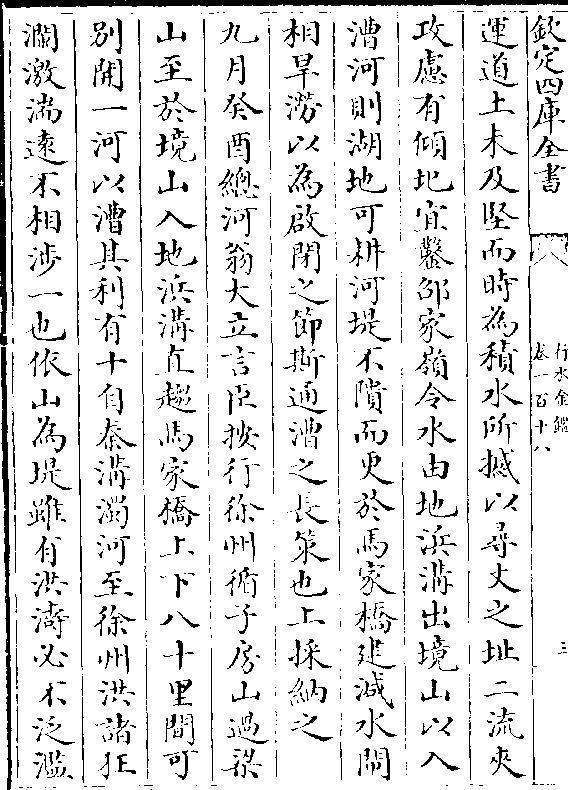 欽定四庫全書
行水金鑑
卷一百十八
三
運道土未及堅而時為積水所撼以尋丈之址二流夾
攻慮有傾圮宜鑿邵家嶺令水由地浜溝出境山以入
漕河則湖地可耕河堤不隤而更於馬家橋建減水閘
相旱澇以為啟閉之節斯通漕之長策也上採納之
九月癸酉總河翁大立言臣按行徐州循子房山過梁
山至於境山入地浜溝直趨馬家橋上下八十里間可
別開一河以漕其利有十自秦溝濁河至徐州洪諸狂
瀾激湍遠不相涉一也依山為堤雖有洪濤必不泛濫